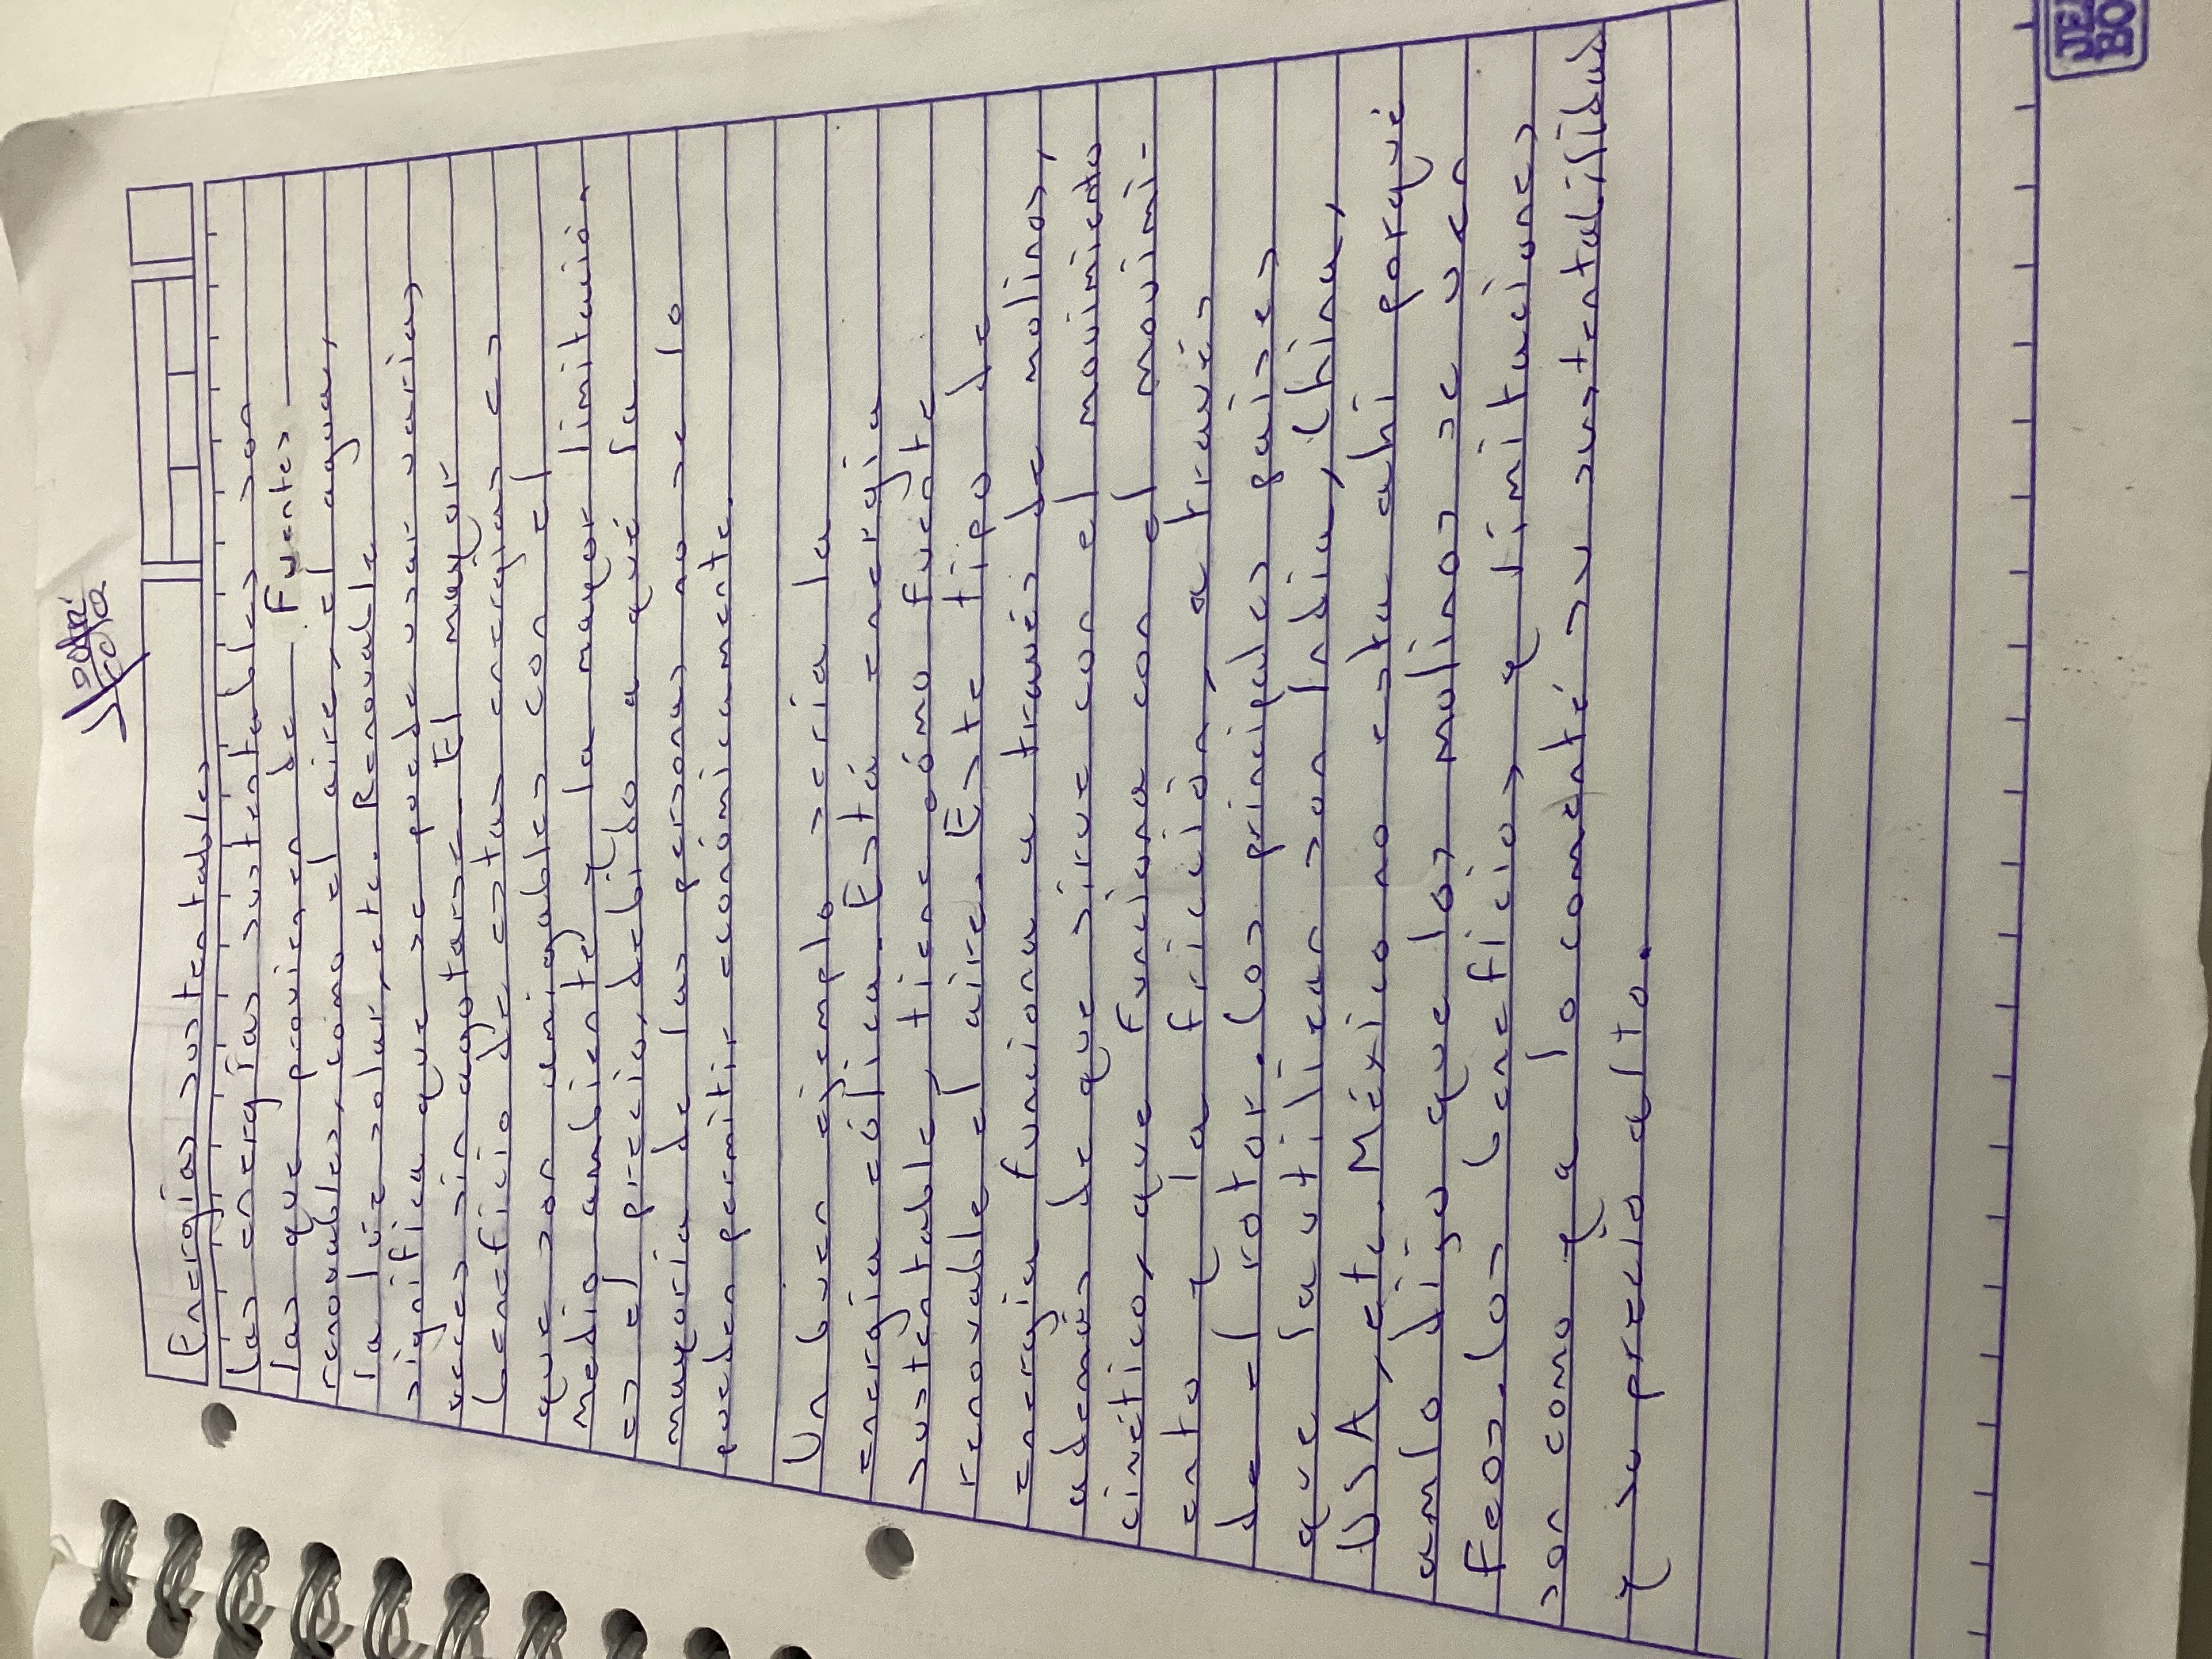 Energías sustentables
Las energías sustentables son
las que provienen de Fuentes
renovables, como el aire, el agua,
la lúz solar, etc. Renovable
significa que se puede usar varias
veces sin agotarse. El mayor
beneficio de estas energías es
que son amigables con el
medio ambiente y la mayor limitación
es el precio, debido a qué la
mayoria de las personas no se lo
pueden permitir económicamente.
Un buen ejemplo seria la
energia eólica. Está energia
sustentable, tiene cómo fuente
renovable el aire. Este tipo de
energia funciona a través de molinos,
además de que sirve con el movimiento
cinético, que funciona con el movimi-
ento y la fricción, a través
del rotor. Los principales países
que la utilizan son India, China,
USA, etc. México no esta ahi porqué
amlo dijo que los molinos se ven
feos. Los beneficios y limitaciones
son como ya lo comenté su sustentabilidad
y su precio alto.